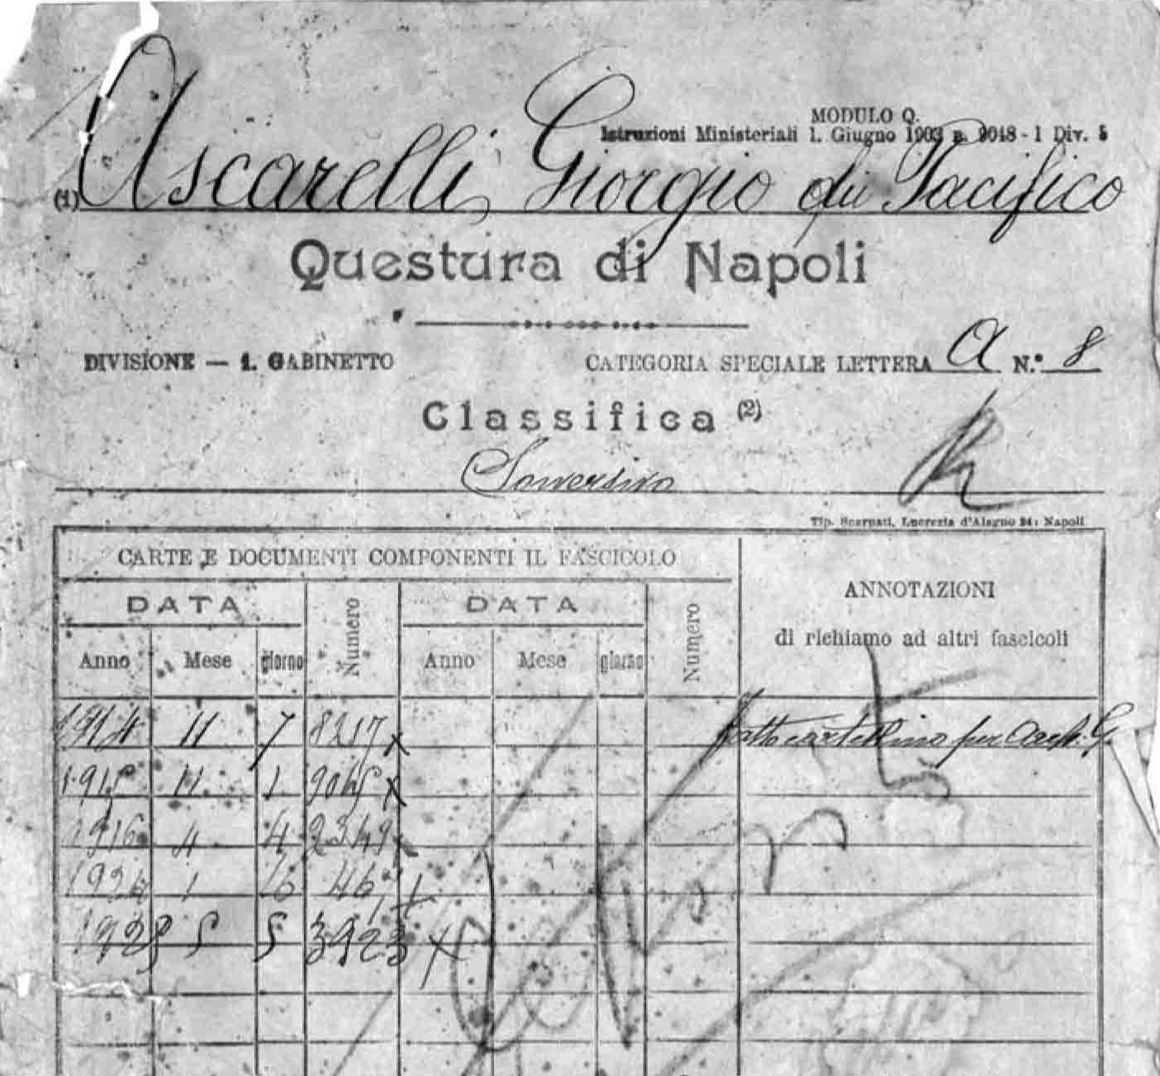 MODULO Q.
Istruzioni Ministeriali 1. Giugno 1903 n. 9048 - 1 Div. 5
(1) Ascarelli Giorgio di Pacifico
Questura di Napoli
DIVISIONE — 1. GABINETTO CATEGORIA SPECIALE LETTERA A N.° 8
Classifica (2)
Sovversivo
Tip. Scarpati, Lucrezia d'Alagno 24: Napoli
CARTE E DOCUMENTI COMPONENTI IL FASCICOLO
ANNOTAZIONI
di richiamo ad altri fascicoli
DATA Numero DATA Numero
Anno Mese giorno Anno Mese giorno
1914 11 7 8217 x Fatto cartellino per
1915 11 1 9015 x
1916 4 4 2349 x
1 16 46
1928 5 5 3923 x